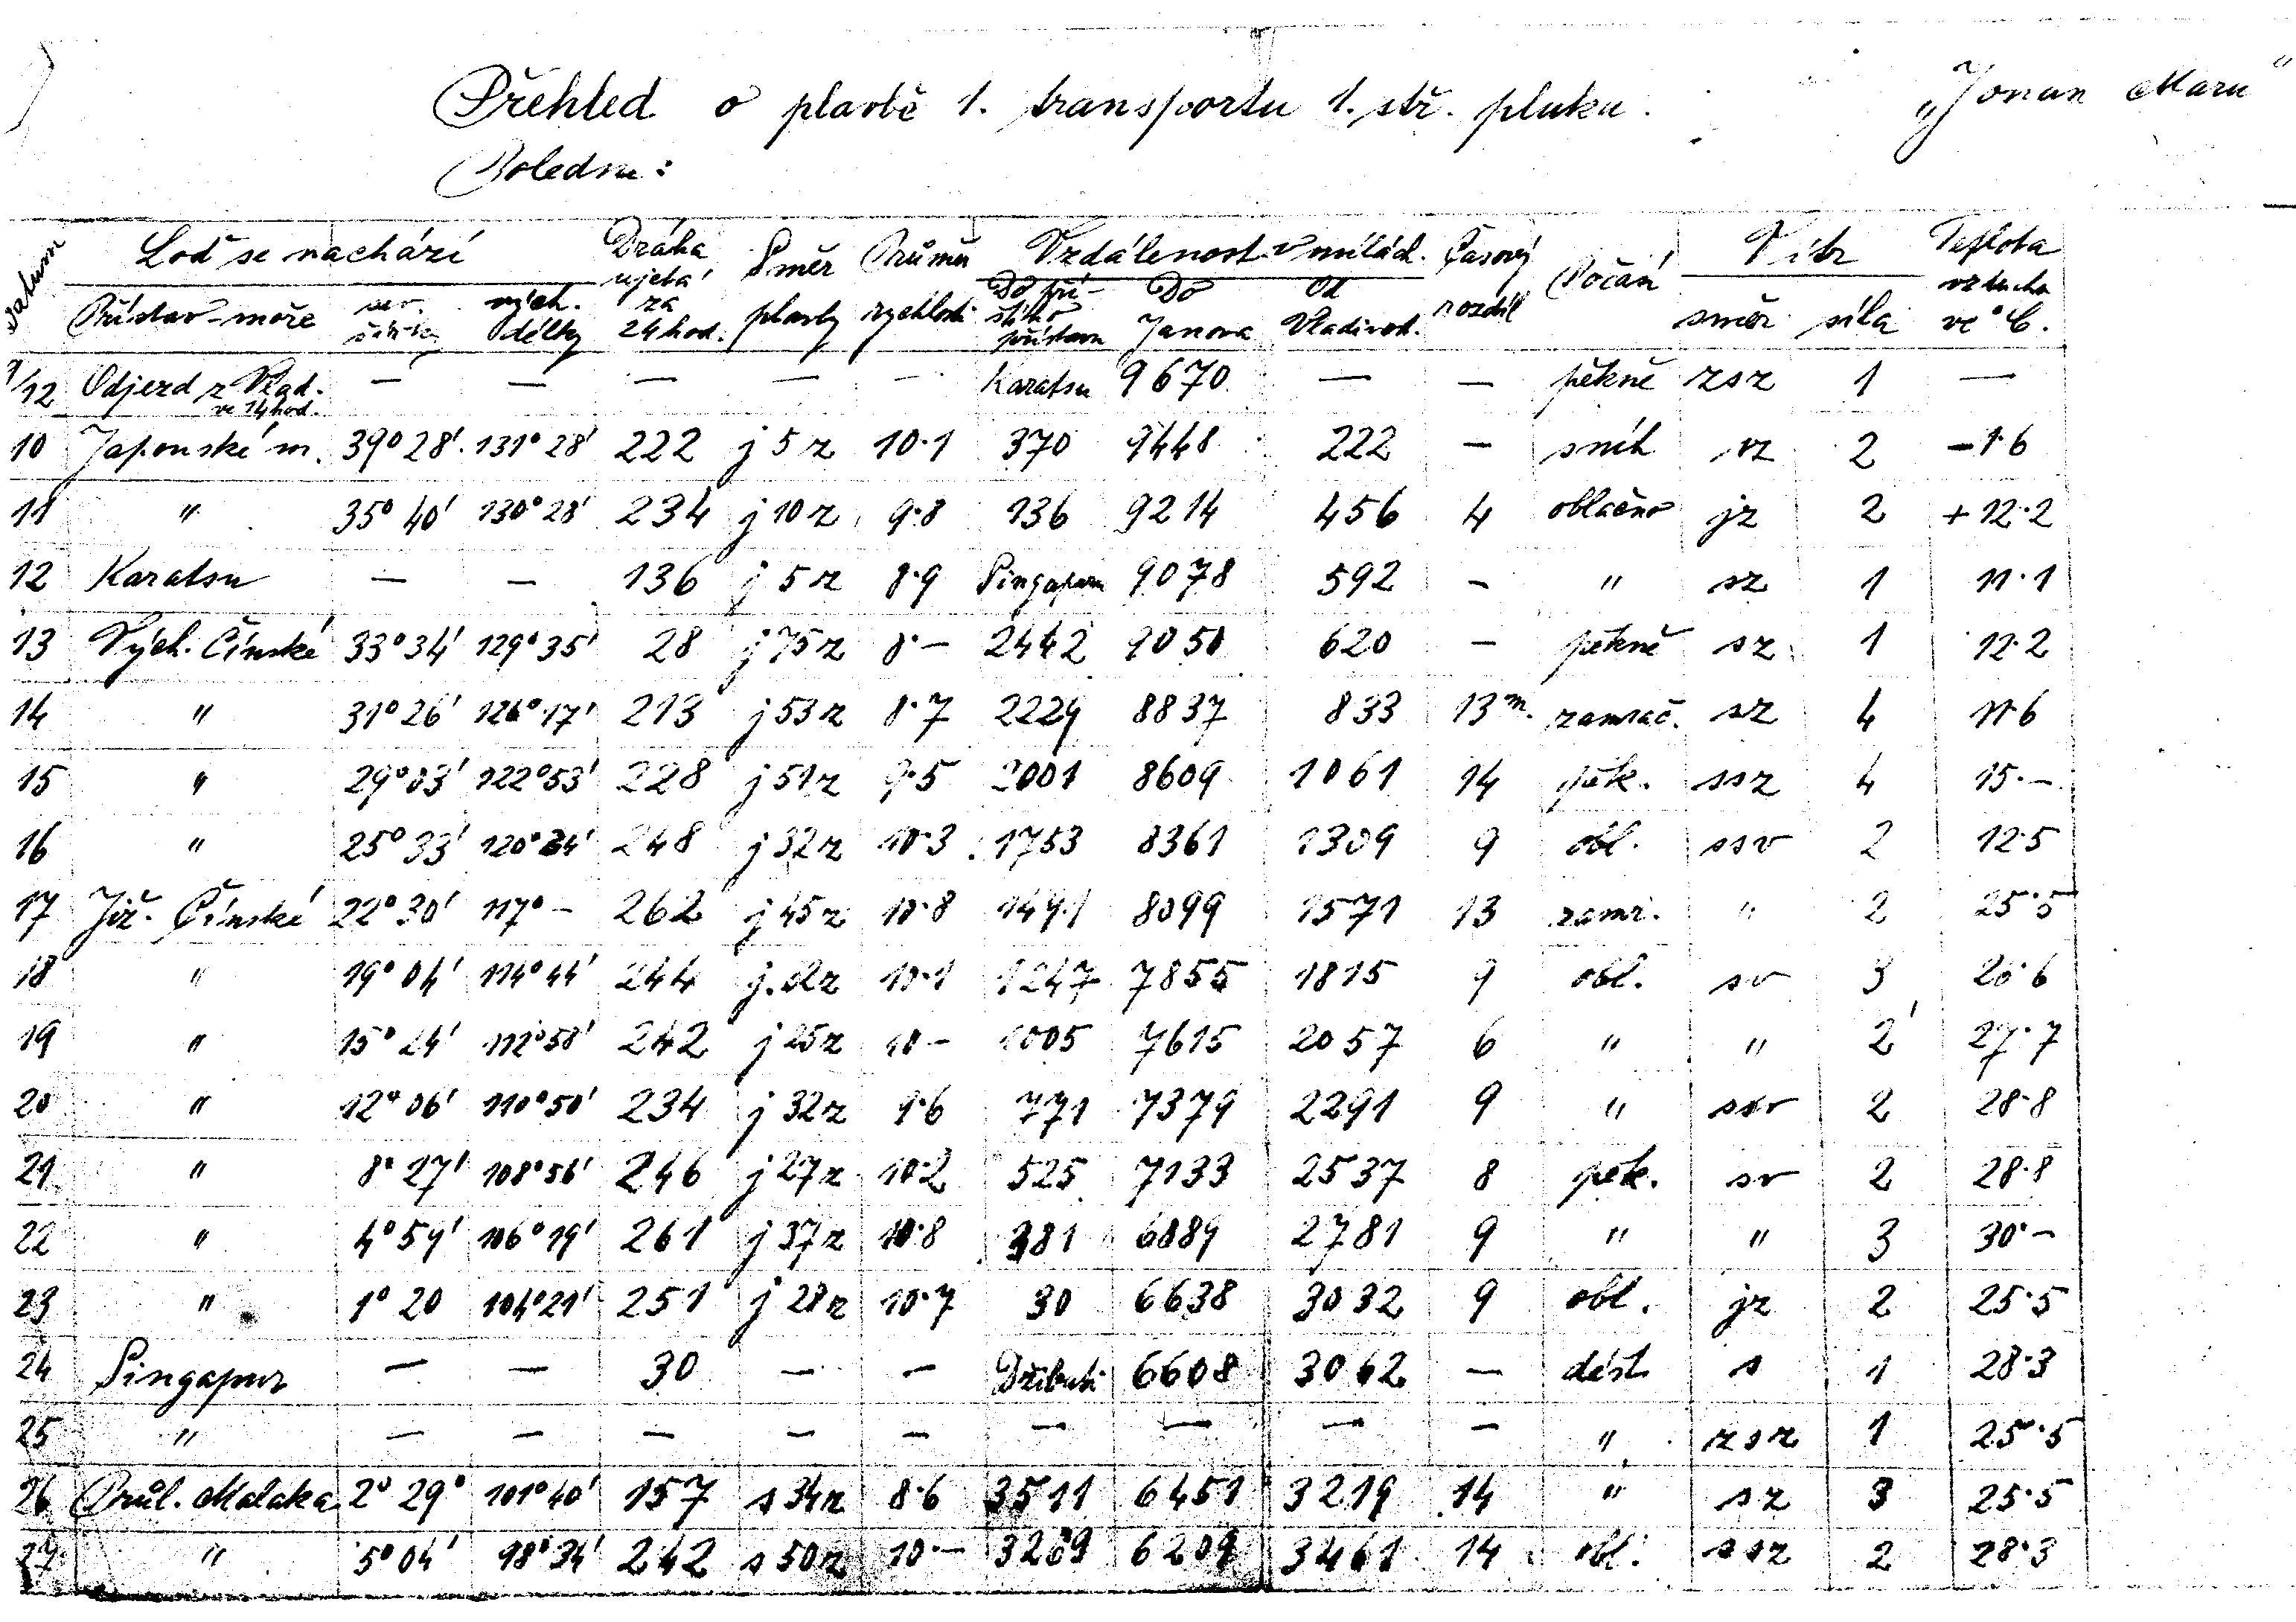 Přehled o plavbě 1. transportu 1. stř. pluku. „Jonan Maru"
Poledne:
Datum Loď se nachází Dráha ujetá za 24 hod. Směr plavby Průměr rychlosti Vzdálenost v mílách. Časový rozdíl Počasí Vítr Teplota vzduchu ve °C.
Přístav-moře sev. šířky vých. délky Do příštího přístavu Do Janova Od Vladivost. směr síla
9/12 Odjezd z Vlad. ve 14 hod. — — — — — Karatsu 9670 — — pěkně zsz 1 —
10 Japonské m. 39° 28' 131° 28' 222 j 5 z 10·1 370 9448 222 — sníh vz 2 -1·6
11 " 35° 40' 130° 28' 234 j 10 z 9·8 136 9214 456 4 oblačno jz 2 +12·2
12 Karatsu — — 136 j 5 z 8·9 Singapuru 9078 592 - " sz 1 11·1
13 Vých. Čínské 33° 34' 129° 35' 28 j 75 z 8·— 2442 9050 620 — pěkně sz 1 12·2
14 " 31° 26' 126° 17' 213 j 53 z 8·7 2229 8837 833 13 m. zamrač. sz 4 11·6
15 " 29° 03' 122° 53' 228 j 51 z 9·5 2001 8609 1061 14 pěk. ssz 4 15·—
16 " 25° 33' 120° 34' 248 j 32 z 10·3 1753 8361 1309 9 obl. ssv 2 12·5
17 Již. Čínské 22° 30' 117° — 262 j 45 z 10·8 1491 8099 1571 13 zamr. " 2 25·5
18 " 19° 04' 114° 44' 244 10·1 1247 7855 1815 9 obl. sv 3 26·6
19 " 15° 24' 112° 58' 242 j 25 z 10— 1005 7615 2057 6 " " 2 27·7
20 " 12° 06' 110° 50' 234 j 32 z 9·6 771 7379 2291 9 " ssv 2 28·8
21 " 8° 27' 108° 56' 246 j 27 z 10·2 525 7133 2537 8 pěk. sv 2 28·8
22 " 4° 59' 106° 19' 261 j 37 z 10·8 381 6889 2781 9 " " 3 30·—
23 " 1° 20 104° 21' 251 j 28 z 10·7 30 6638 3032 9 obl. jz 2 25·5
24 Singapur — — 30 — — Džibuti 6608 3062 — déšť s 1 28·3
25 " — — — — — — — — — " zsz 1 25·5
26 Průl. Malaka 2° 29° 101° 40' 157 s 34 z 8·6 3511 6451 3219 14 " sz 3 25·5
27 " 5° 04' 98° 34' 242 s 50 z 10·— 3269 6209 3461 14 obl. ssz 2 28·3